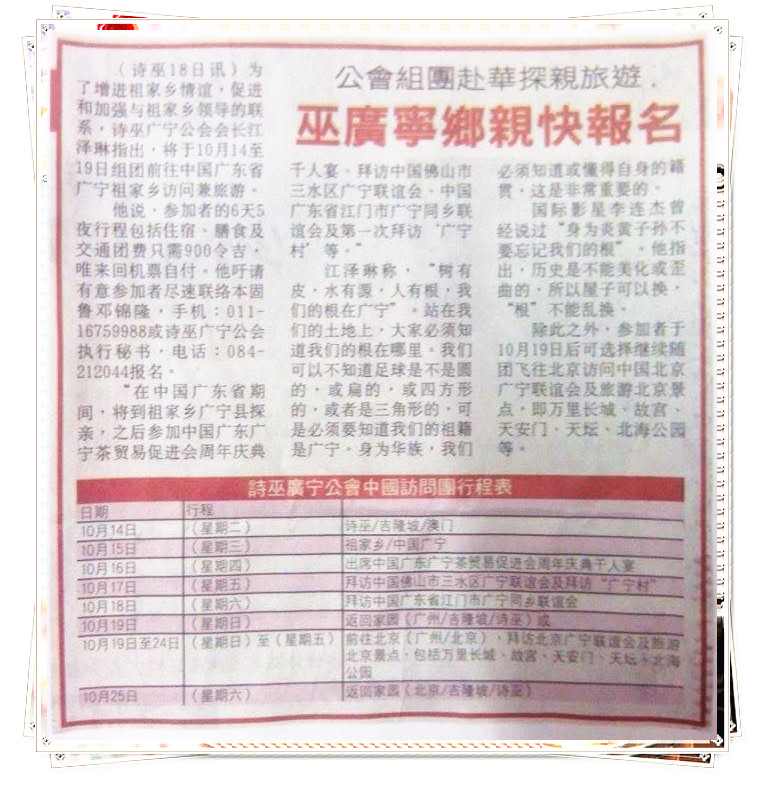 公會組團赴華探親旅遊
巫廣寧鄉親快報名
（诗巫18日讯）为
了增进祖家乡情谊，促进
和加强与祖家乡领导的联
系，诗巫广宁公会会长江
泽琳指出，将于10月14至
19日组团前往中国广东省
广宁祖家乡访问兼旅游。
他说，参加者的6天5
夜行程包括住宿、膳食及
交通团费只需900令吉，
唯来回机票自付。他吁请
有意参加者尽速联络本固
鲁邓锦隆，手机：011-
16759988或诗巫广宁公会
执行秘书，电话：084-
212044报名。
“在中国广东省期
间，将到祖家乡广宁县探
亲，之后参加中国广东广
宁茶贸易促进会周年庆典
千人宴、拜访中国佛山市
三水区广宁联谊会、中国
广东省江门市广宁同乡联
谊会及第一次拜访‘广宁
村’等。”
江泽琳称，“树有
皮，水有源，人有根，我
们的根在广宁”。站在我
们的土地上，大家必须知
道我们的根在哪里。我们
可以不知道足球是不是圆
的，或扁的，或四方形
的，或者是三角形的，可
是必须要知道我们的祖籍
是广宁。身为华族，我们
必须知道或懂得自身的籍
贯，这是非常重要的。
国际影星李连杰曾
经说过“身为炎黄子孙不
要忘记我们的根”。他指
出，历史是不能美化或歪
曲的，所以屋子可以换，
“根”不能乱换。
除此之外，参加者于
10月19日后可选择继续随
团飞往北京访问中国北京
广宁联谊会及旅游北京景
点，即万里长城、故宫、
天安门、天坛、北海公园
等。
詩巫廣宁公會中國訪問團行程表
日期 行程
10月14日 （星期二） 诗巫/吉隆坡/澳门
10月15日 （星期三） 祖家乡/中国广宁
10月16日 （星期四） 出席中国广东广宁茶贸易促进会周年庆典千人宴
10月17日 （星期五） 拜访中国佛山市三水区广宁联谊会及拜访“广宁村”
10月18日 （星期六） 拜访中国广东省江门市广宁同乡联谊会
10月19日 （星期日） 返回家园（广州/吉隆坡/诗巫）或
10月19日至24日 （星期日）至（星期五） 前往北京（广州/北京），拜访北京广宁联谊会及旅游
北京景点，包括万里长城、故宫、天安门、天坛、北海
公园
10月25日 （星期六） 返回家园（北京/吉隆坡/诗巫）